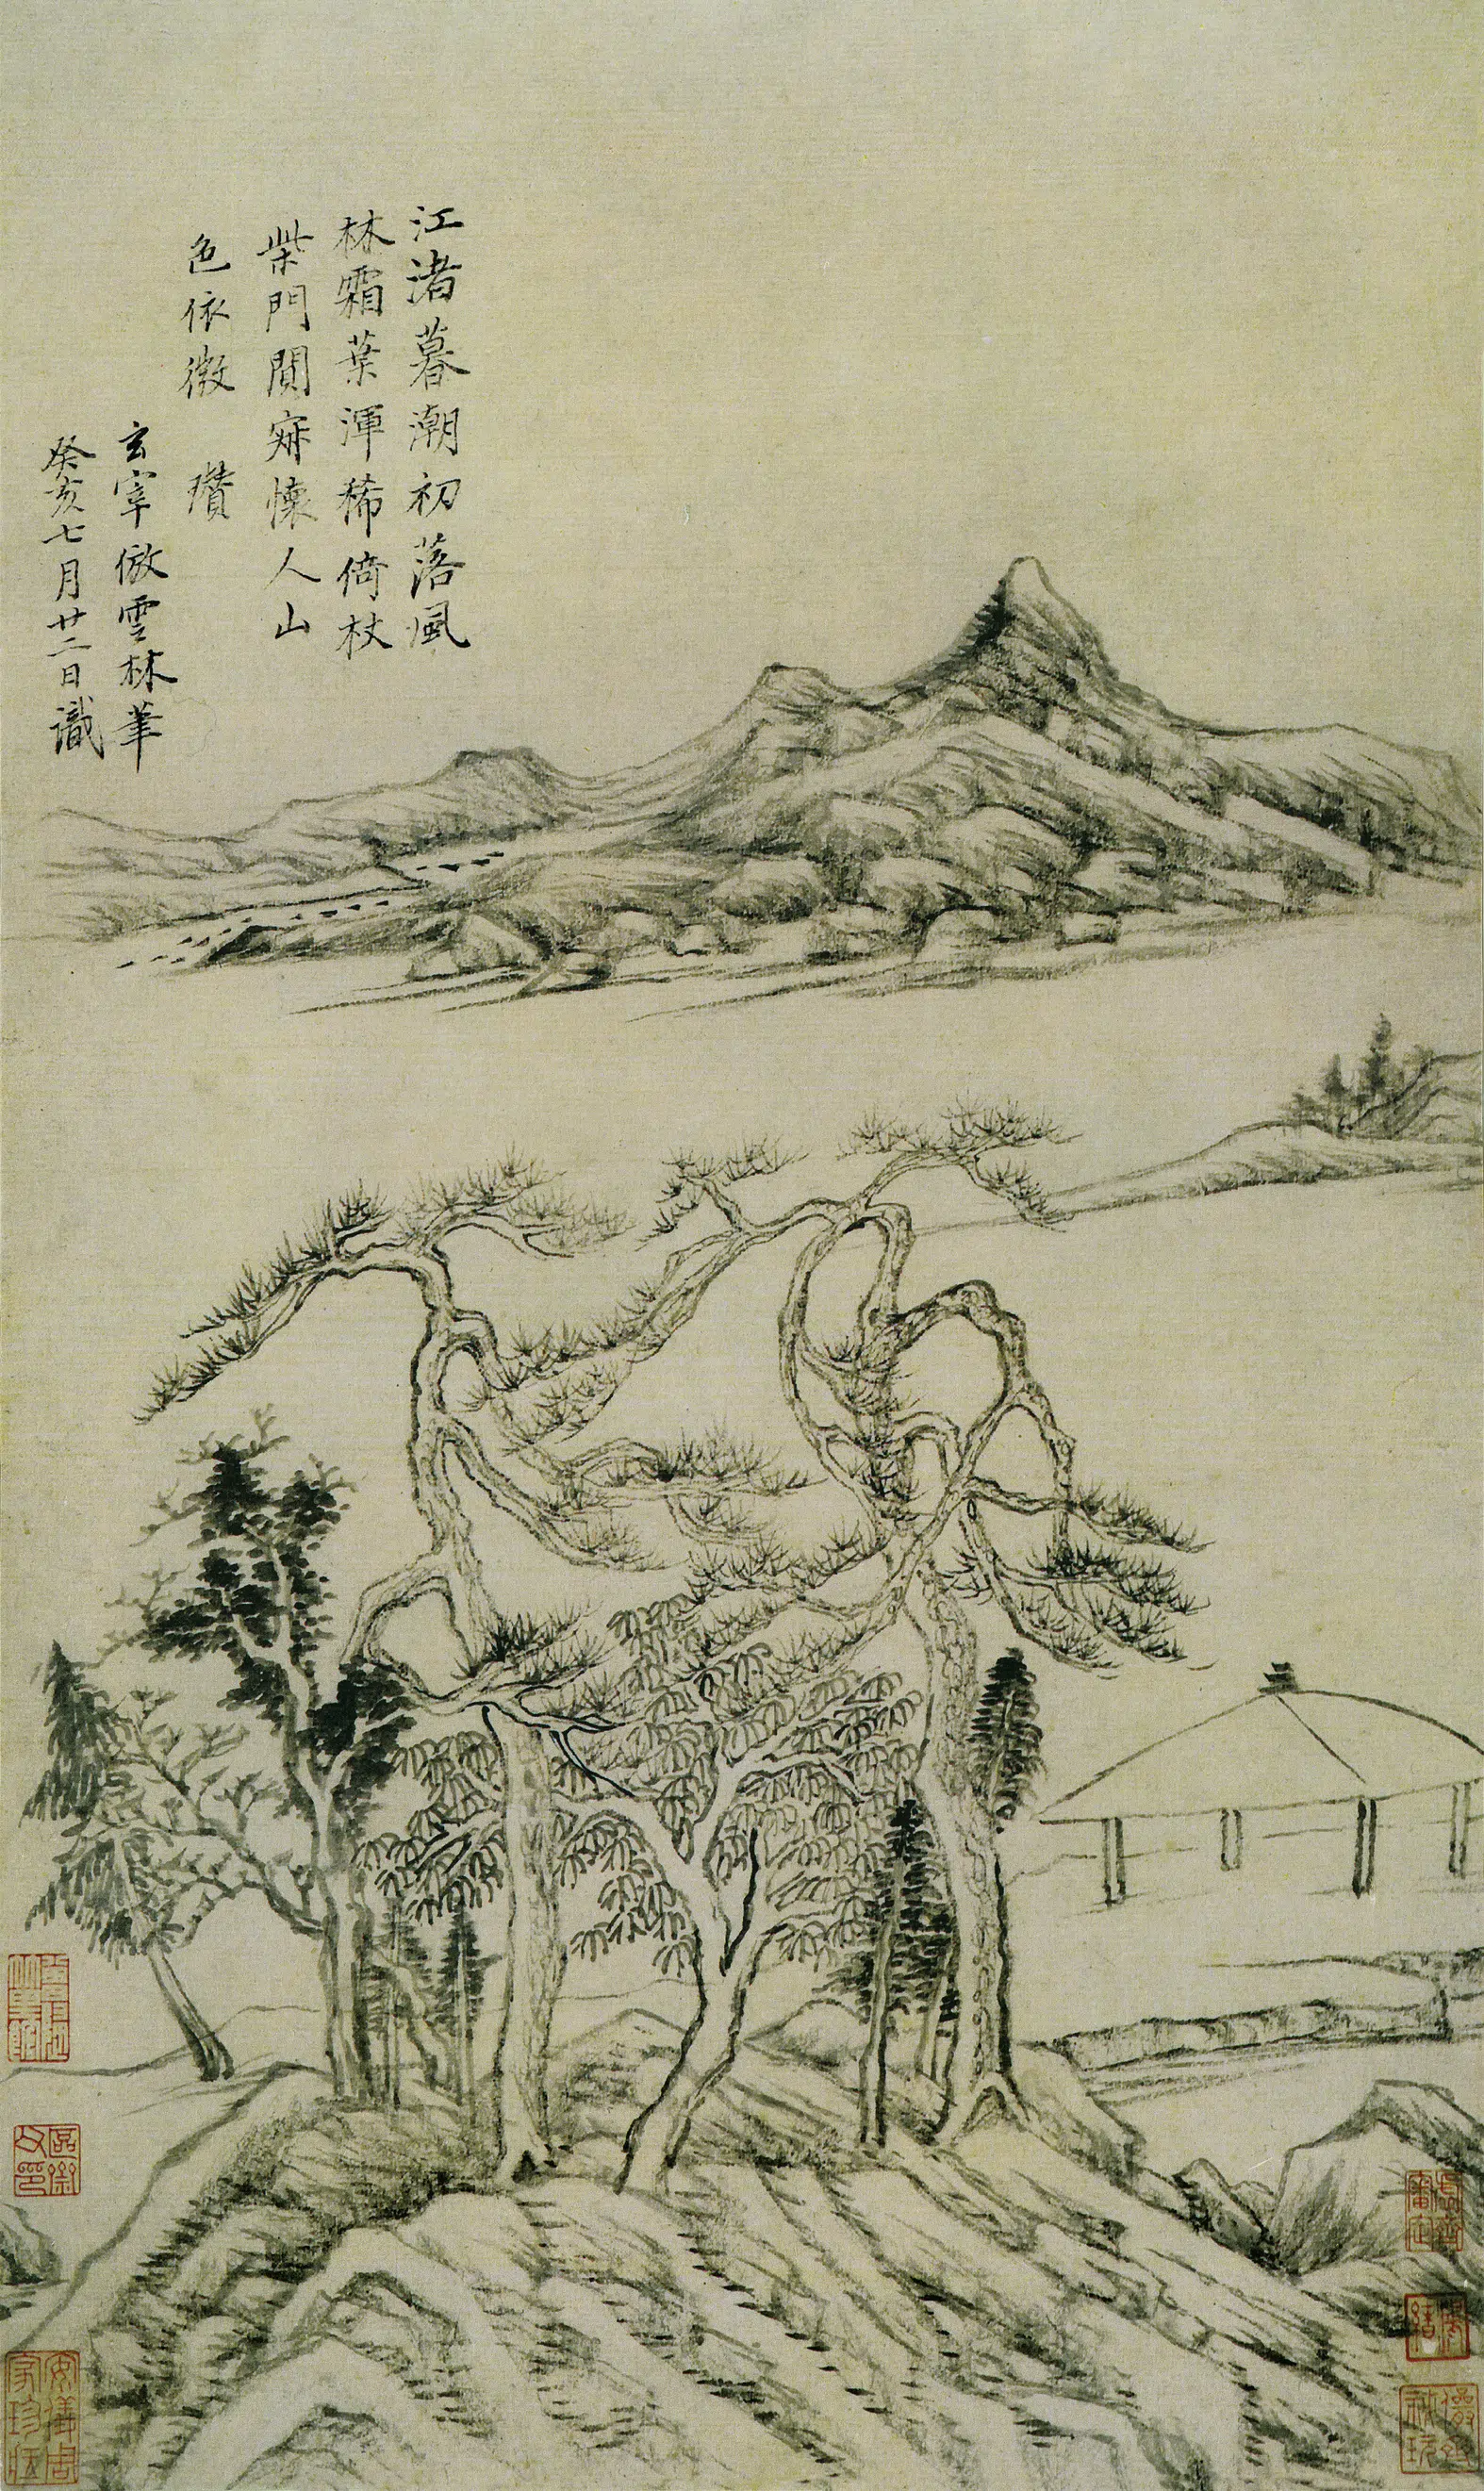 江渚暮潮初落風
林霜葉渾稀倚杖
柴門閴寂懷人山
色依微　瓚
玄宰倣雲林筆
癸亥七月廿二日識
安儀周家珍藏